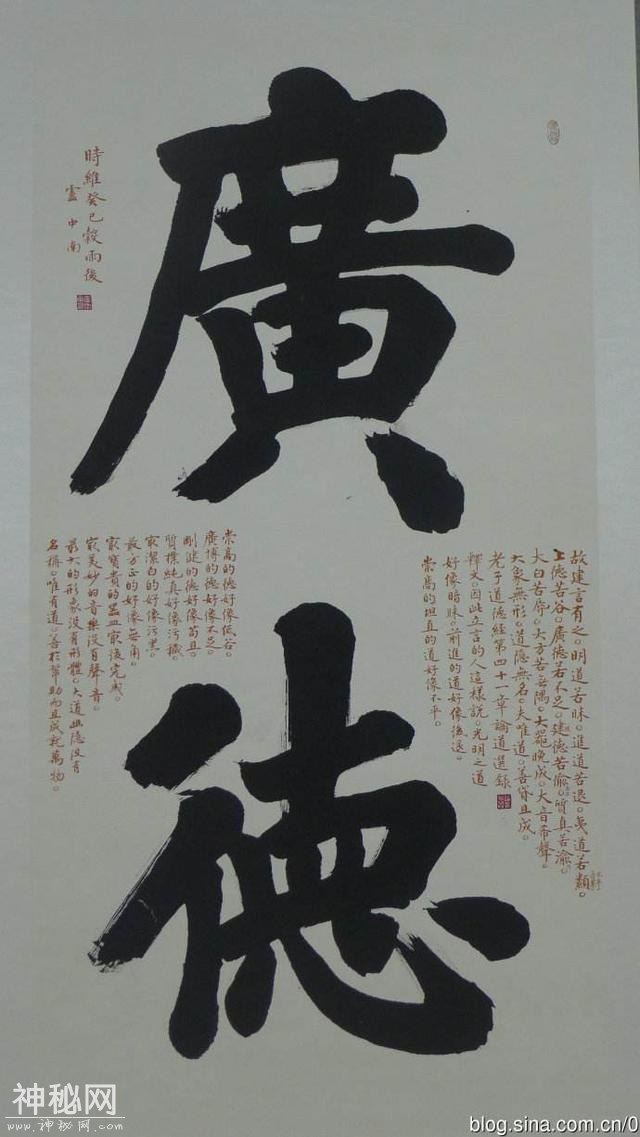 廣
德
故建言有之。明道若昧。進道若退。夷道若纇。
上德若谷。廣德若不足。建德若偷。質真若渝。
大白若辱。大方若無隅。大器晚成。大音希聲。
大象無形。道隱無名。夫唯道。善貸且成。
老子道德經第四十一章論道選錄
釋文。因此立言的人這樣說。光明之道
好像暗昧。前進的道好像後退。
崇高的坦直的道好像不平。
崇高的德好像低谷。
廣博的德好像不足。
剛健的德好像苟且。
質樸純真好像污穢。
最潔白的好像污黑。
最方正的好像無角。
最寶貴的器皿最後完成。
最美妙的音樂没有聲音。
最大的形象没有形體。大道幽隱没有
名稱。唯有道。善於幫助而且成就萬物。
時維癸巳榖雨後
雲中南
神秘网
www.神秘网.com
blog.sina.com.cn/0